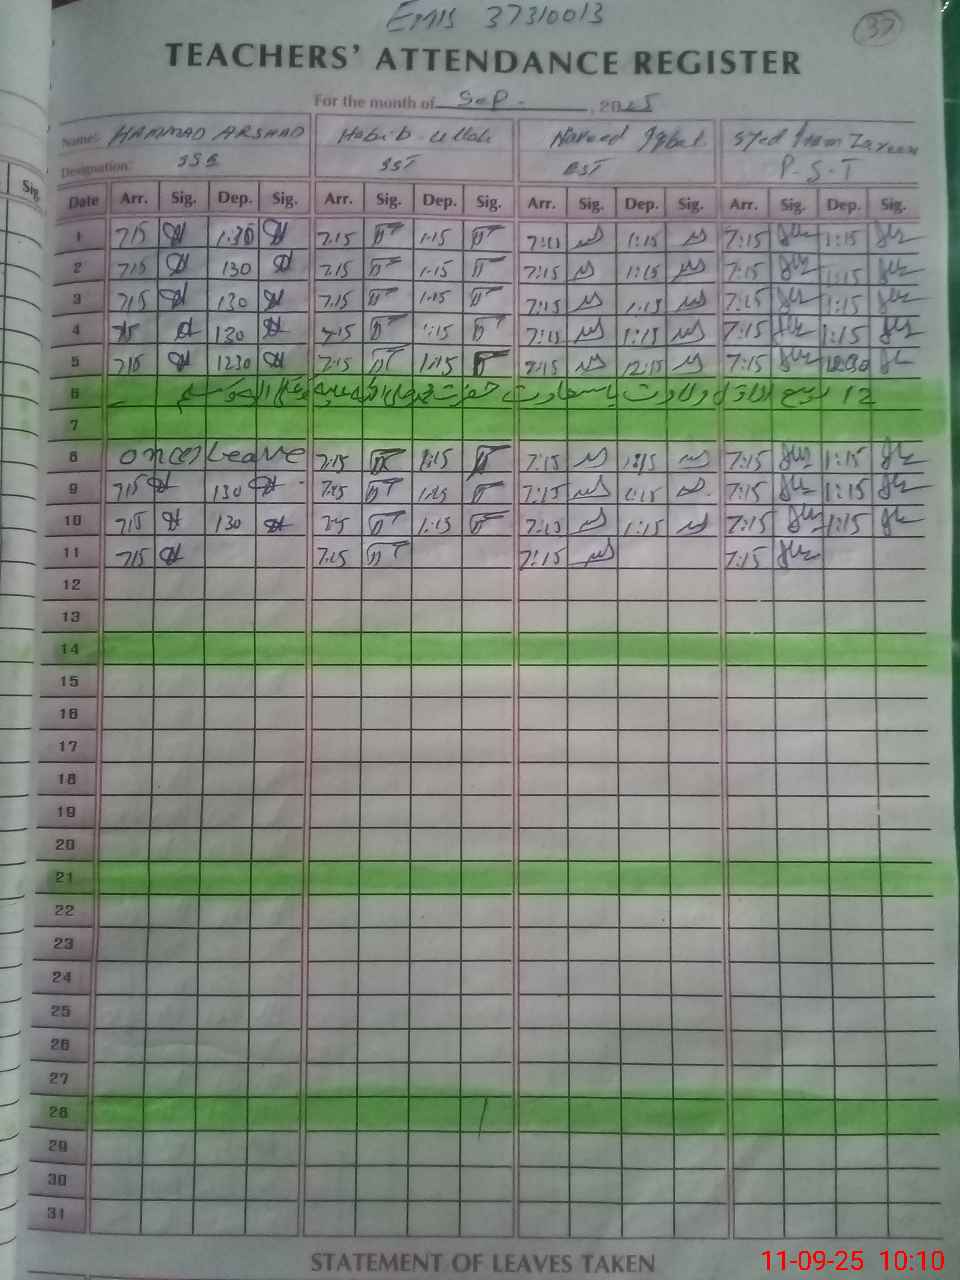 EMIS 37310013
37
TEACHERS' ATTENDANCE REGISTER
For the month of Sep. , 2025
Name: HAMMAD ARSHAD Habib Ullah Naveed Iqbal Syed Imam Zareen
Designation: SST EST P.S.T
Sig.
Date Arr. Sig. Dep. Sig. Arr. Sig. Dep. Sig. Arr. Sig. Dep. Sig. Arr. Sig. Dep. Sig.
1 715 1:30 7:15 1:15 7:15 1:15 7:15 1:15
2 715 130 7:15 1:15 7:15 1:15 7:15 1:15
3 715 130 7:15 1:15 7:15 1:15 7:15 1:15
4 715 130 7:15 1:15 7:15 1:15 7:15 1:15
5 715 1230 7:15 1:15 7:15 12:15 7:15 1230
6 12 ربیع الاول ولادت باسعادت حضرت محمد
7
8 Leave 7:15 1:15 7:15 1:15 7:15 1:15
9 715 130 7:15 1:15 7:15 1:15 7:15 1:15
10 715 130 715 1:15 7:15 1:15 7:15 1:15
11 715 7:15 7:15 7:15
12
13
14
15
16
17
18
19
20
21
22
23
24
25
26
27
28
29
30
31
STATEMENT OF LEAVES TAKEN
11-09-25 10:10